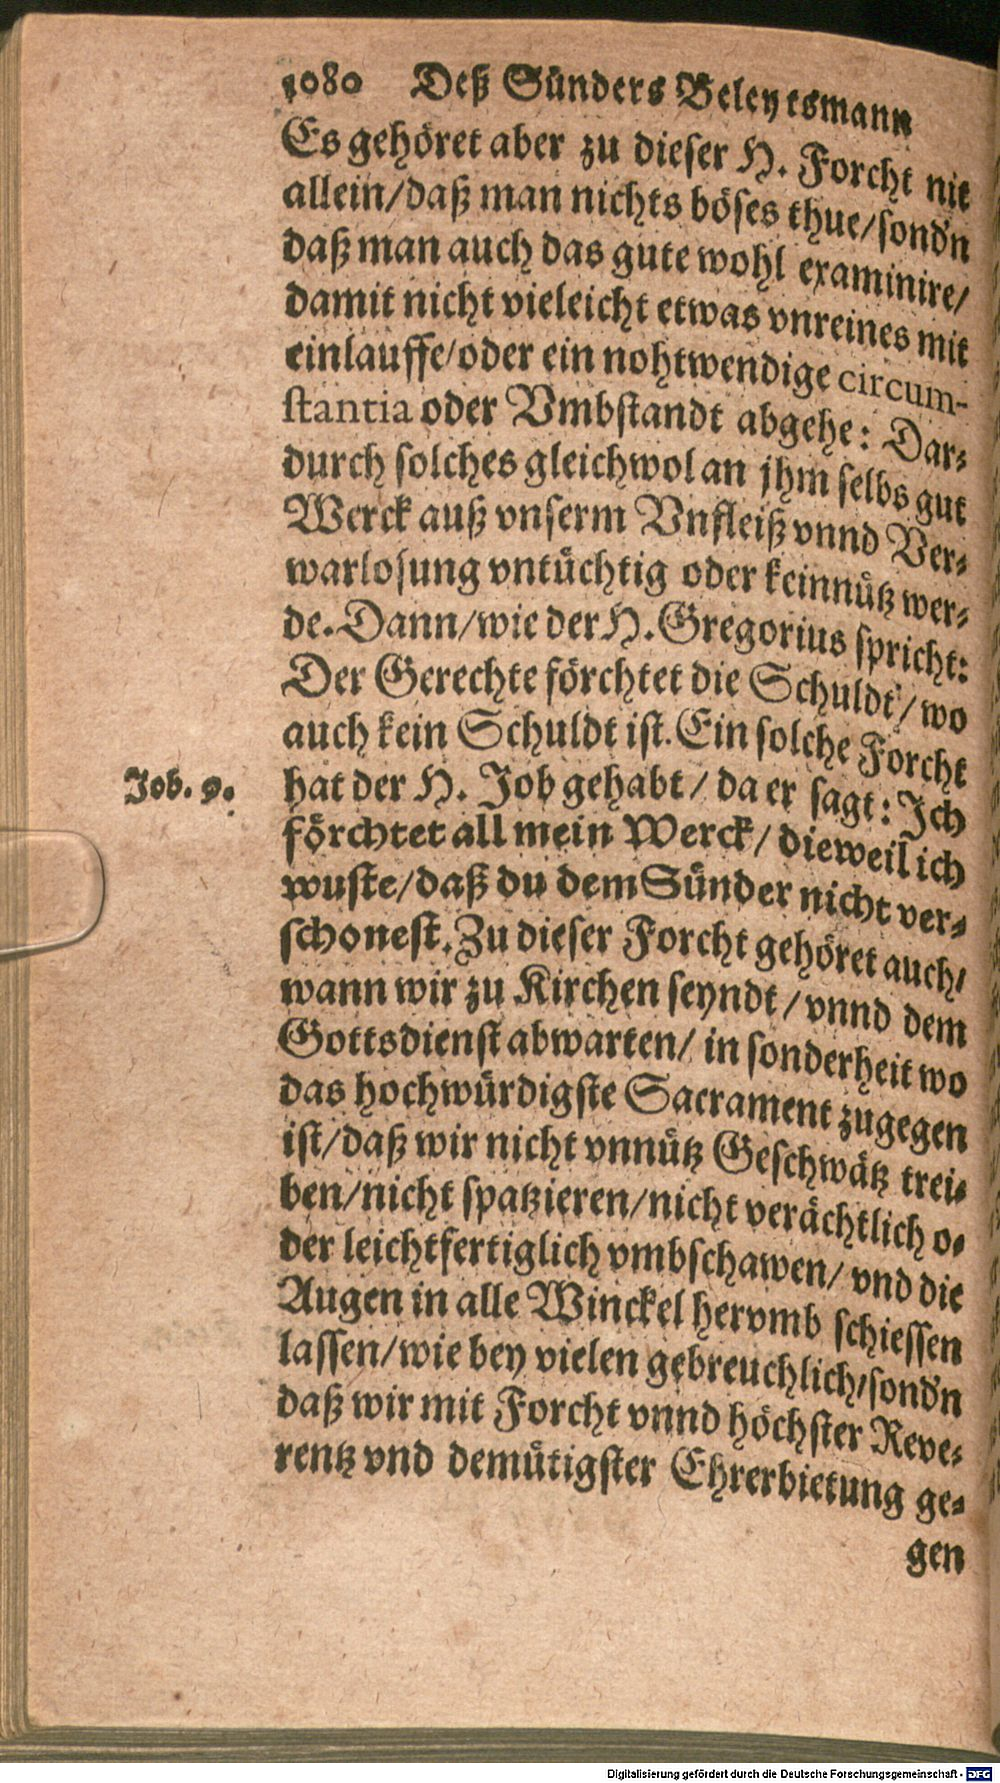 1080 Deß Sünders Beleytsmann
Es gehöret aber zu dieser H. Forcht nit
allein/daß man nichts böses thue/sond'n
daß man auch das gute wohl examinire/
damit nicht vieleicht etwas vnreines mit
einlauffe/oder ein nohtwendige circum-
stantia oder Vmbstandt abgehe: Dar-
durch solches gleichwol an jhm selbs gut
Werck auß vnserm Vnfleiß vnnd Ver-
warlosung vntüchtig oder kein nütz wer-
de. Dann/wie der H. Gregorius spricht:
Der Gerechte förchtet die Schuldt/wo
auch kein Schuldt ist. Ein solche Forcht
Job. 9.
hat der H. Job gehabt/ da er sagt: Ich
förchtet all mein Werck/ dieweil ich
wuste/daß du dem Sünder nicht ver-
schonest. Zu dieser Forcht gehöret auch/
wann wir zu Kirchen seyndt/vnnd dem
Gottsdienst abwarten/ in sonderheit wo
das hochwürdigste Sacrament zugegen
ist/daß wir nicht vnnütz Geschwätz trei-
ben/nicht spatzieren/nicht verächtlich o-
der leichtfertiglich vmbschawen/ vnd die
Augen in alle Winckel hervmb schiessen
lassen/wie bey vielen gebreuchlich/sond'n
daß wir mit Forcht vnnd höchster Reve-
rentz vnd demütigster Ehrerbietung ge-
gen
Digitalisierung gefördert durch die Deutsche Forschungsgemeinschaft - DFG